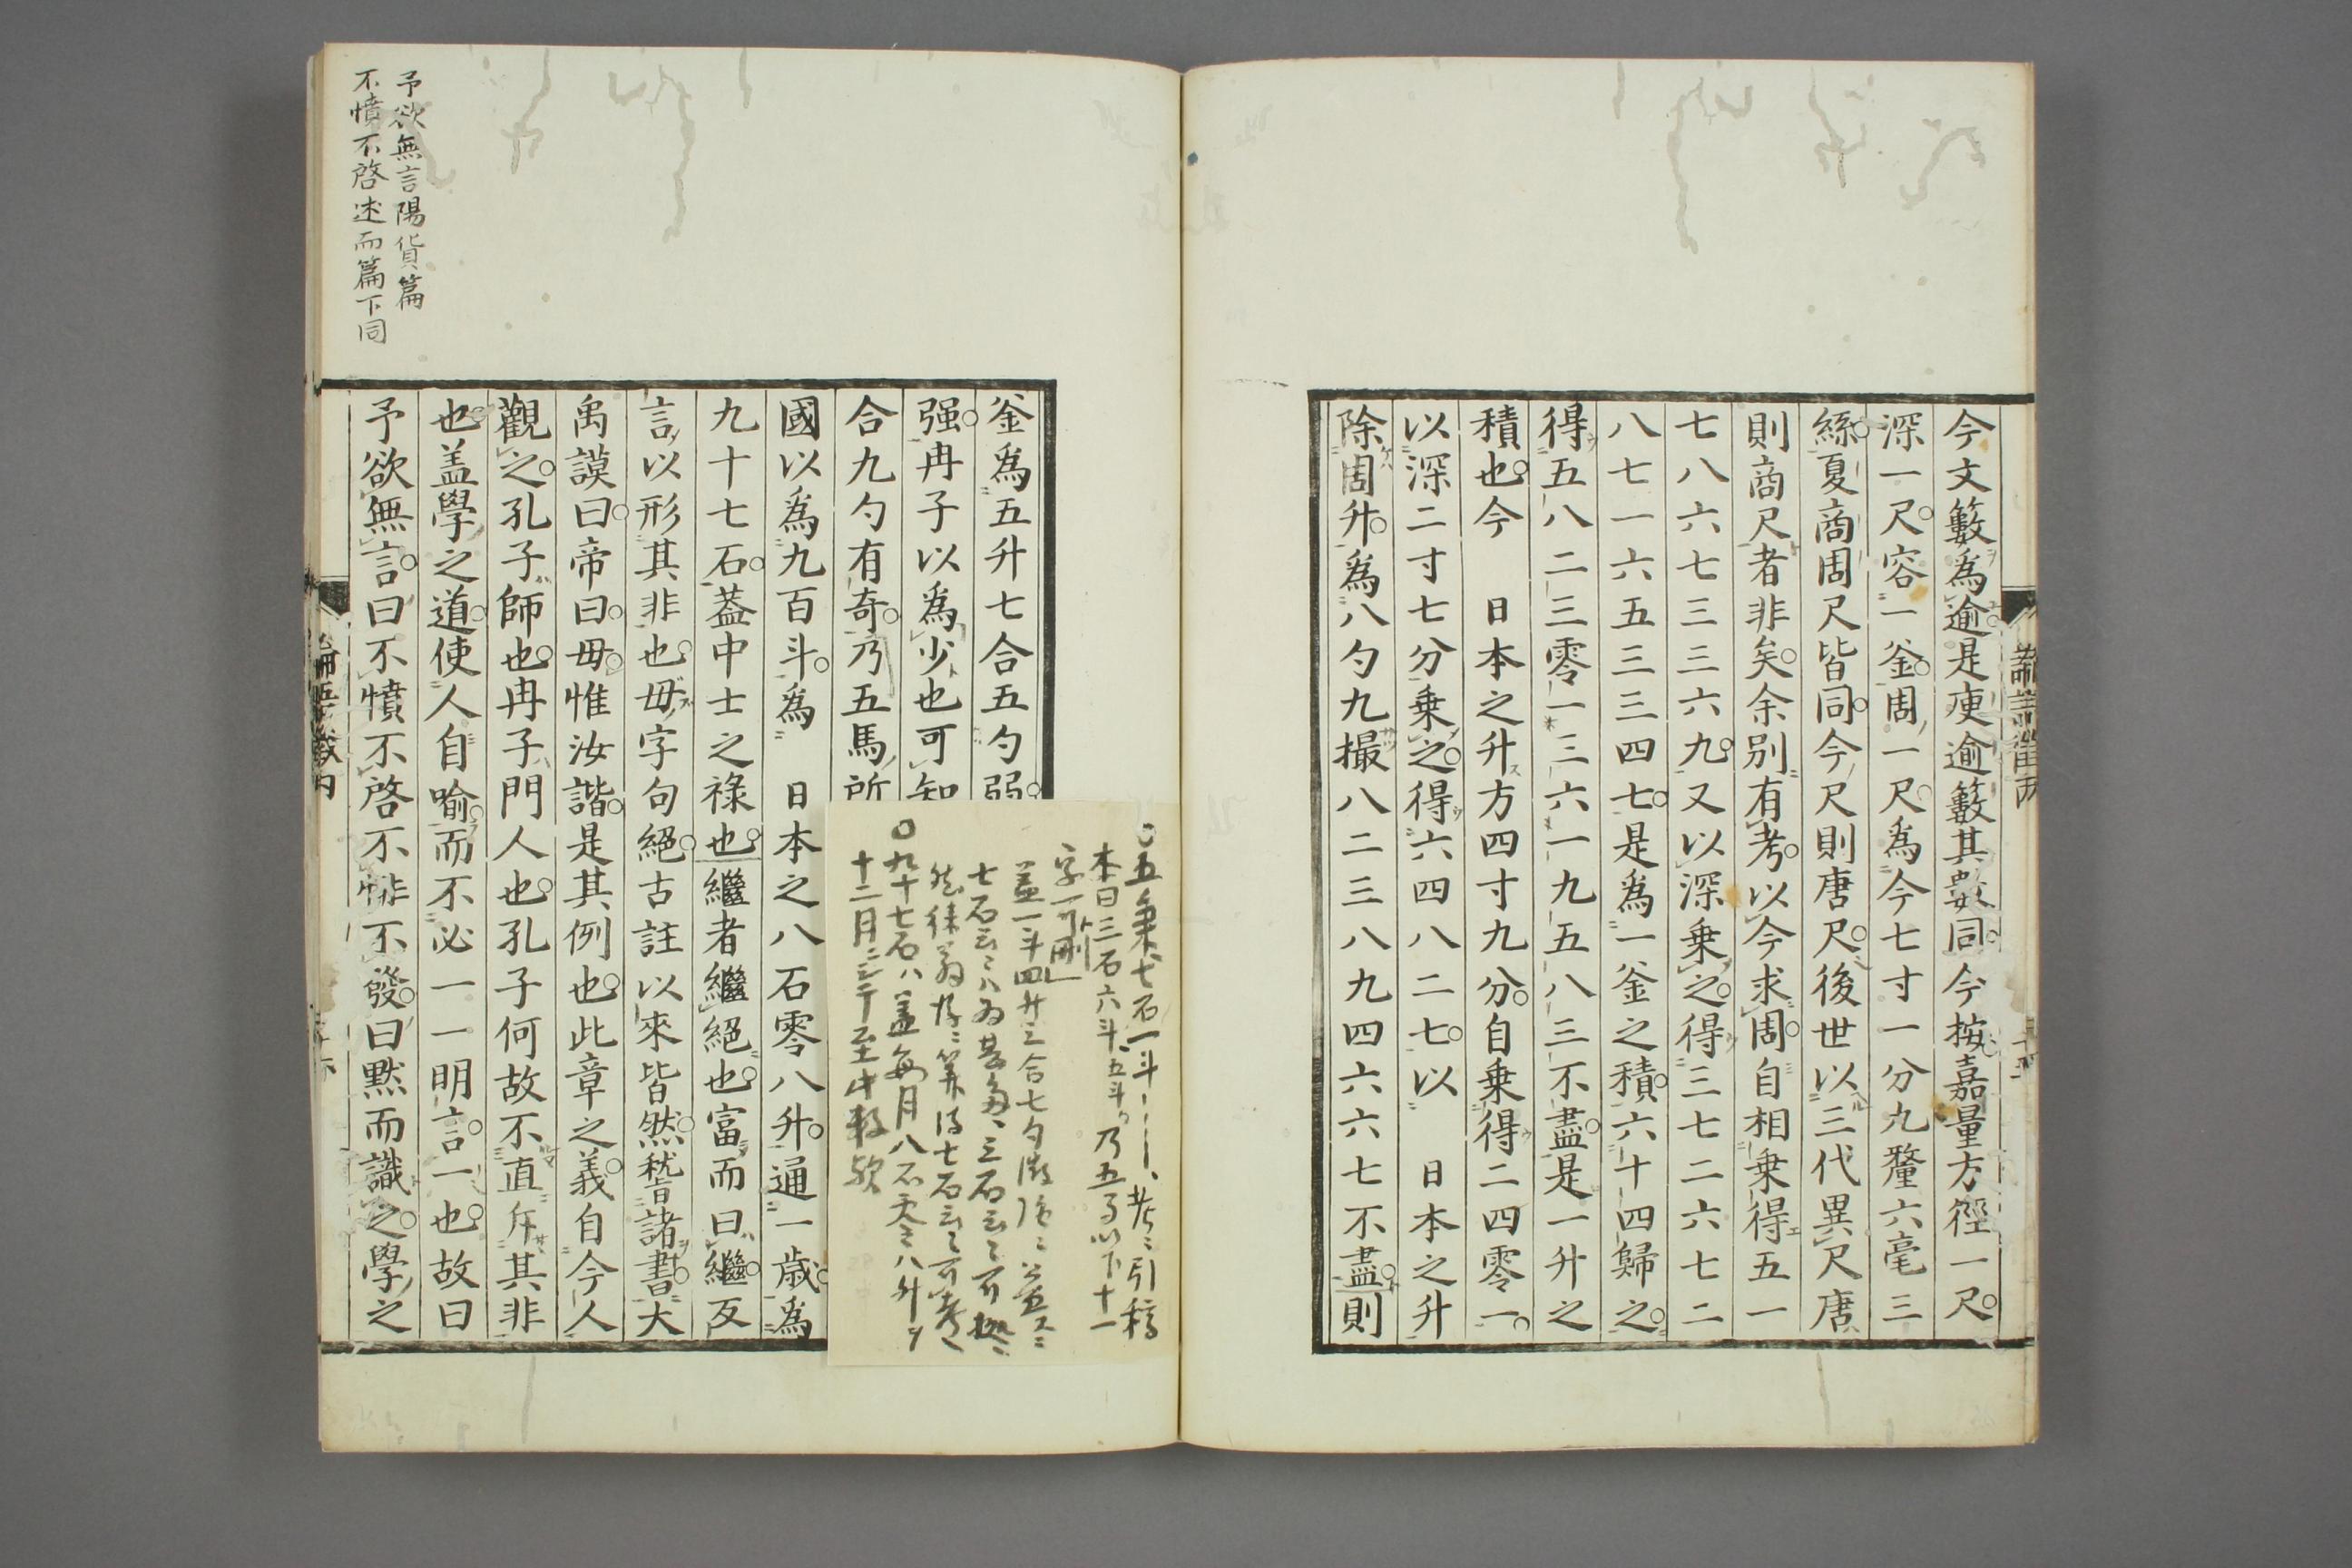 今文籔爲逾是庾逾籔其數同今按嘉量方徑一尺
深一尺容一釜周一尺爲今七寸一分九釐六毫三
絲夏商周尺皆同今尺則唐尺後世以三代異尺唐
則商尺者非矣余別有考以今求周自相乗得五一
七八六七三三六九又以深乗之得三七二六七二
八七一六五三三四七是爲一釜之積六十四歸之
得五八二三零一三六一九五八三不盡是一升之
積也今　日本之升方四寸九分自乗得二四零一
以深二寸七分乗之得六四八二七以　日本之升
除周升爲八勺九撮八二三八九四六六七不盡則
論語徴丙
釜爲五升七合五勺弱
强冉子以爲少也可知
合九勺有奇乃五馬所
國以爲九百斗爲　日本之八石零八升通一歳爲
九十七石葢中士之祿也繼者繼絕也富而曰繼反
言以形其非也毋字句絕古註以來皆然稽諸書大
禹謨曰帝曰毋惟汝諧是其例也此章之義自今人
觀之孔子師也冉子門人也孔子何故不直斥其非
也盖學之道使人自喻而不必一一明言一也故曰
予欲無言曰不憤不啓不悱不發曰黙而識之學之
予欲無言陽貨篇
不憤不啓述而篇下同
〇五秉七石一斗
本曰三石六斗五斗乃五馬以下十一
字可刪
〇九十七石ハ盖每月八石零八升ヲ